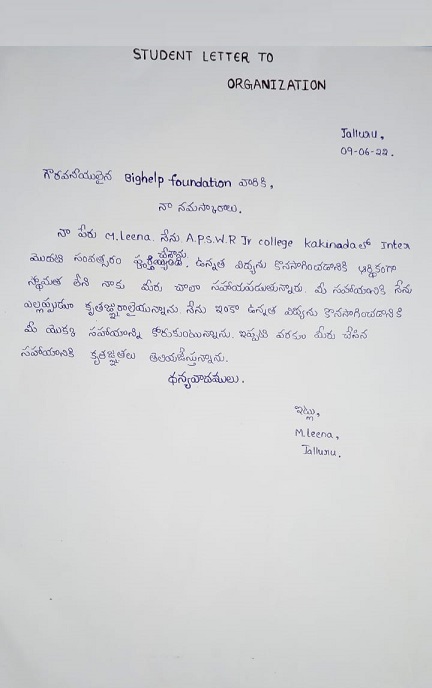 STUDENT LETTER TO
ORGANIZATION
Jalluru,
09-06-22.
గౌరవనీయులైన Bighelp foundation వారికి,
నా నమస్కారాలు.
నా పేరు M.Leena. నేను A.P.S.W.R Jr college kakinadaలో Inter
మొదటి సంవత్సరం పూర్తి చేశాను. ఉన్నత విద్యను కొనసాగించడానికి ఆర్థికంగా
స్థోమత లేని నాకు మీరు చాలా సహాయపడుతున్నారు. మీ సహాయానికి నేను
ఎల్లప్పుడూ కృతజ్ఞురాలైయున్నాను. నేను ఇంకా ఉన్నత విద్యను కొనసాగించడానికి
మీ యొక్క సహాయాన్ని కోరుకుంటున్నాను. ఇప్పటి వరకు మీరు చేసిన
సహాయానికి కృతజ్ఞతలు తెలియజేస్తున్నాను.
ధన్యవాదములు.
ఇట్లు,
M.Leena,
Jalluru.